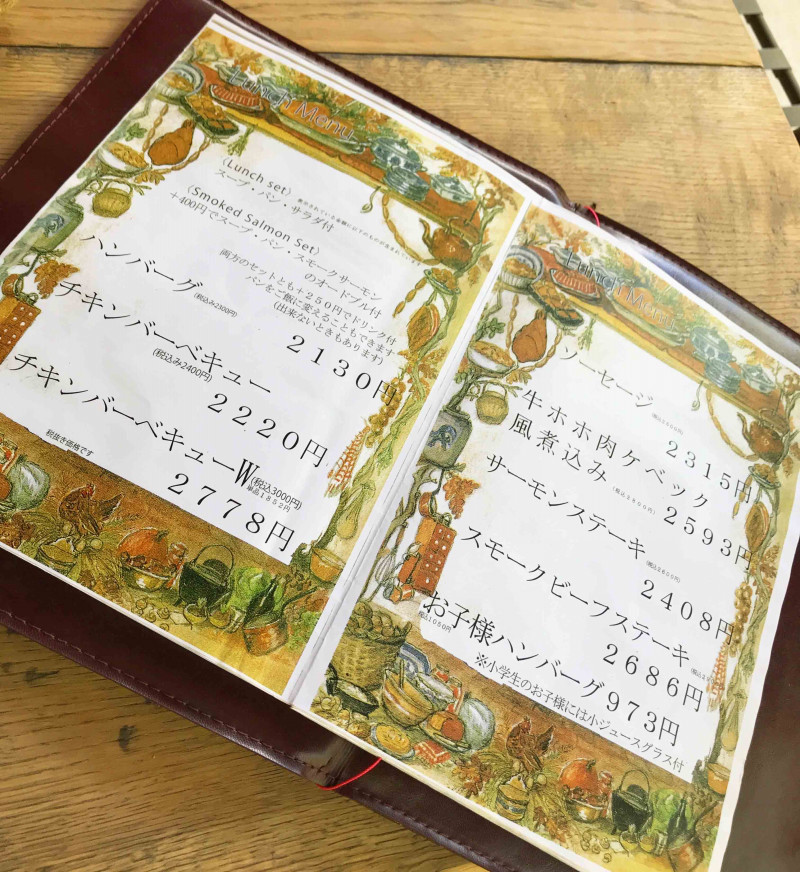 Lunch Menu
〈Lunch set〉
スープ・パン・サラダ付
〈Smoked Salmon Set〉
+400円でスープ・パン・スモークサーモン
のオードブル付
両方のセットとも+250円でドリンク付
パンをご飯に変えることもできます
(出来ないときもあります)
ハンバーグ
(税込み2300円)
2130円
チキンバーベキュー
(税込み2400円)
2220円
チキンバーベキューW
(税込み3000円)
単品1852円
2778円
税抜き価格です
Lunch Menu
ソーセージ
2315円
牛ホホ肉ケベック
風煮込み
2593円
サーモンステーキ
2408円
スモークビーフステーキ
2686円
お子様ハンバーグ973円
税込1050円
※小学生のお子様には小ジュースグラス付